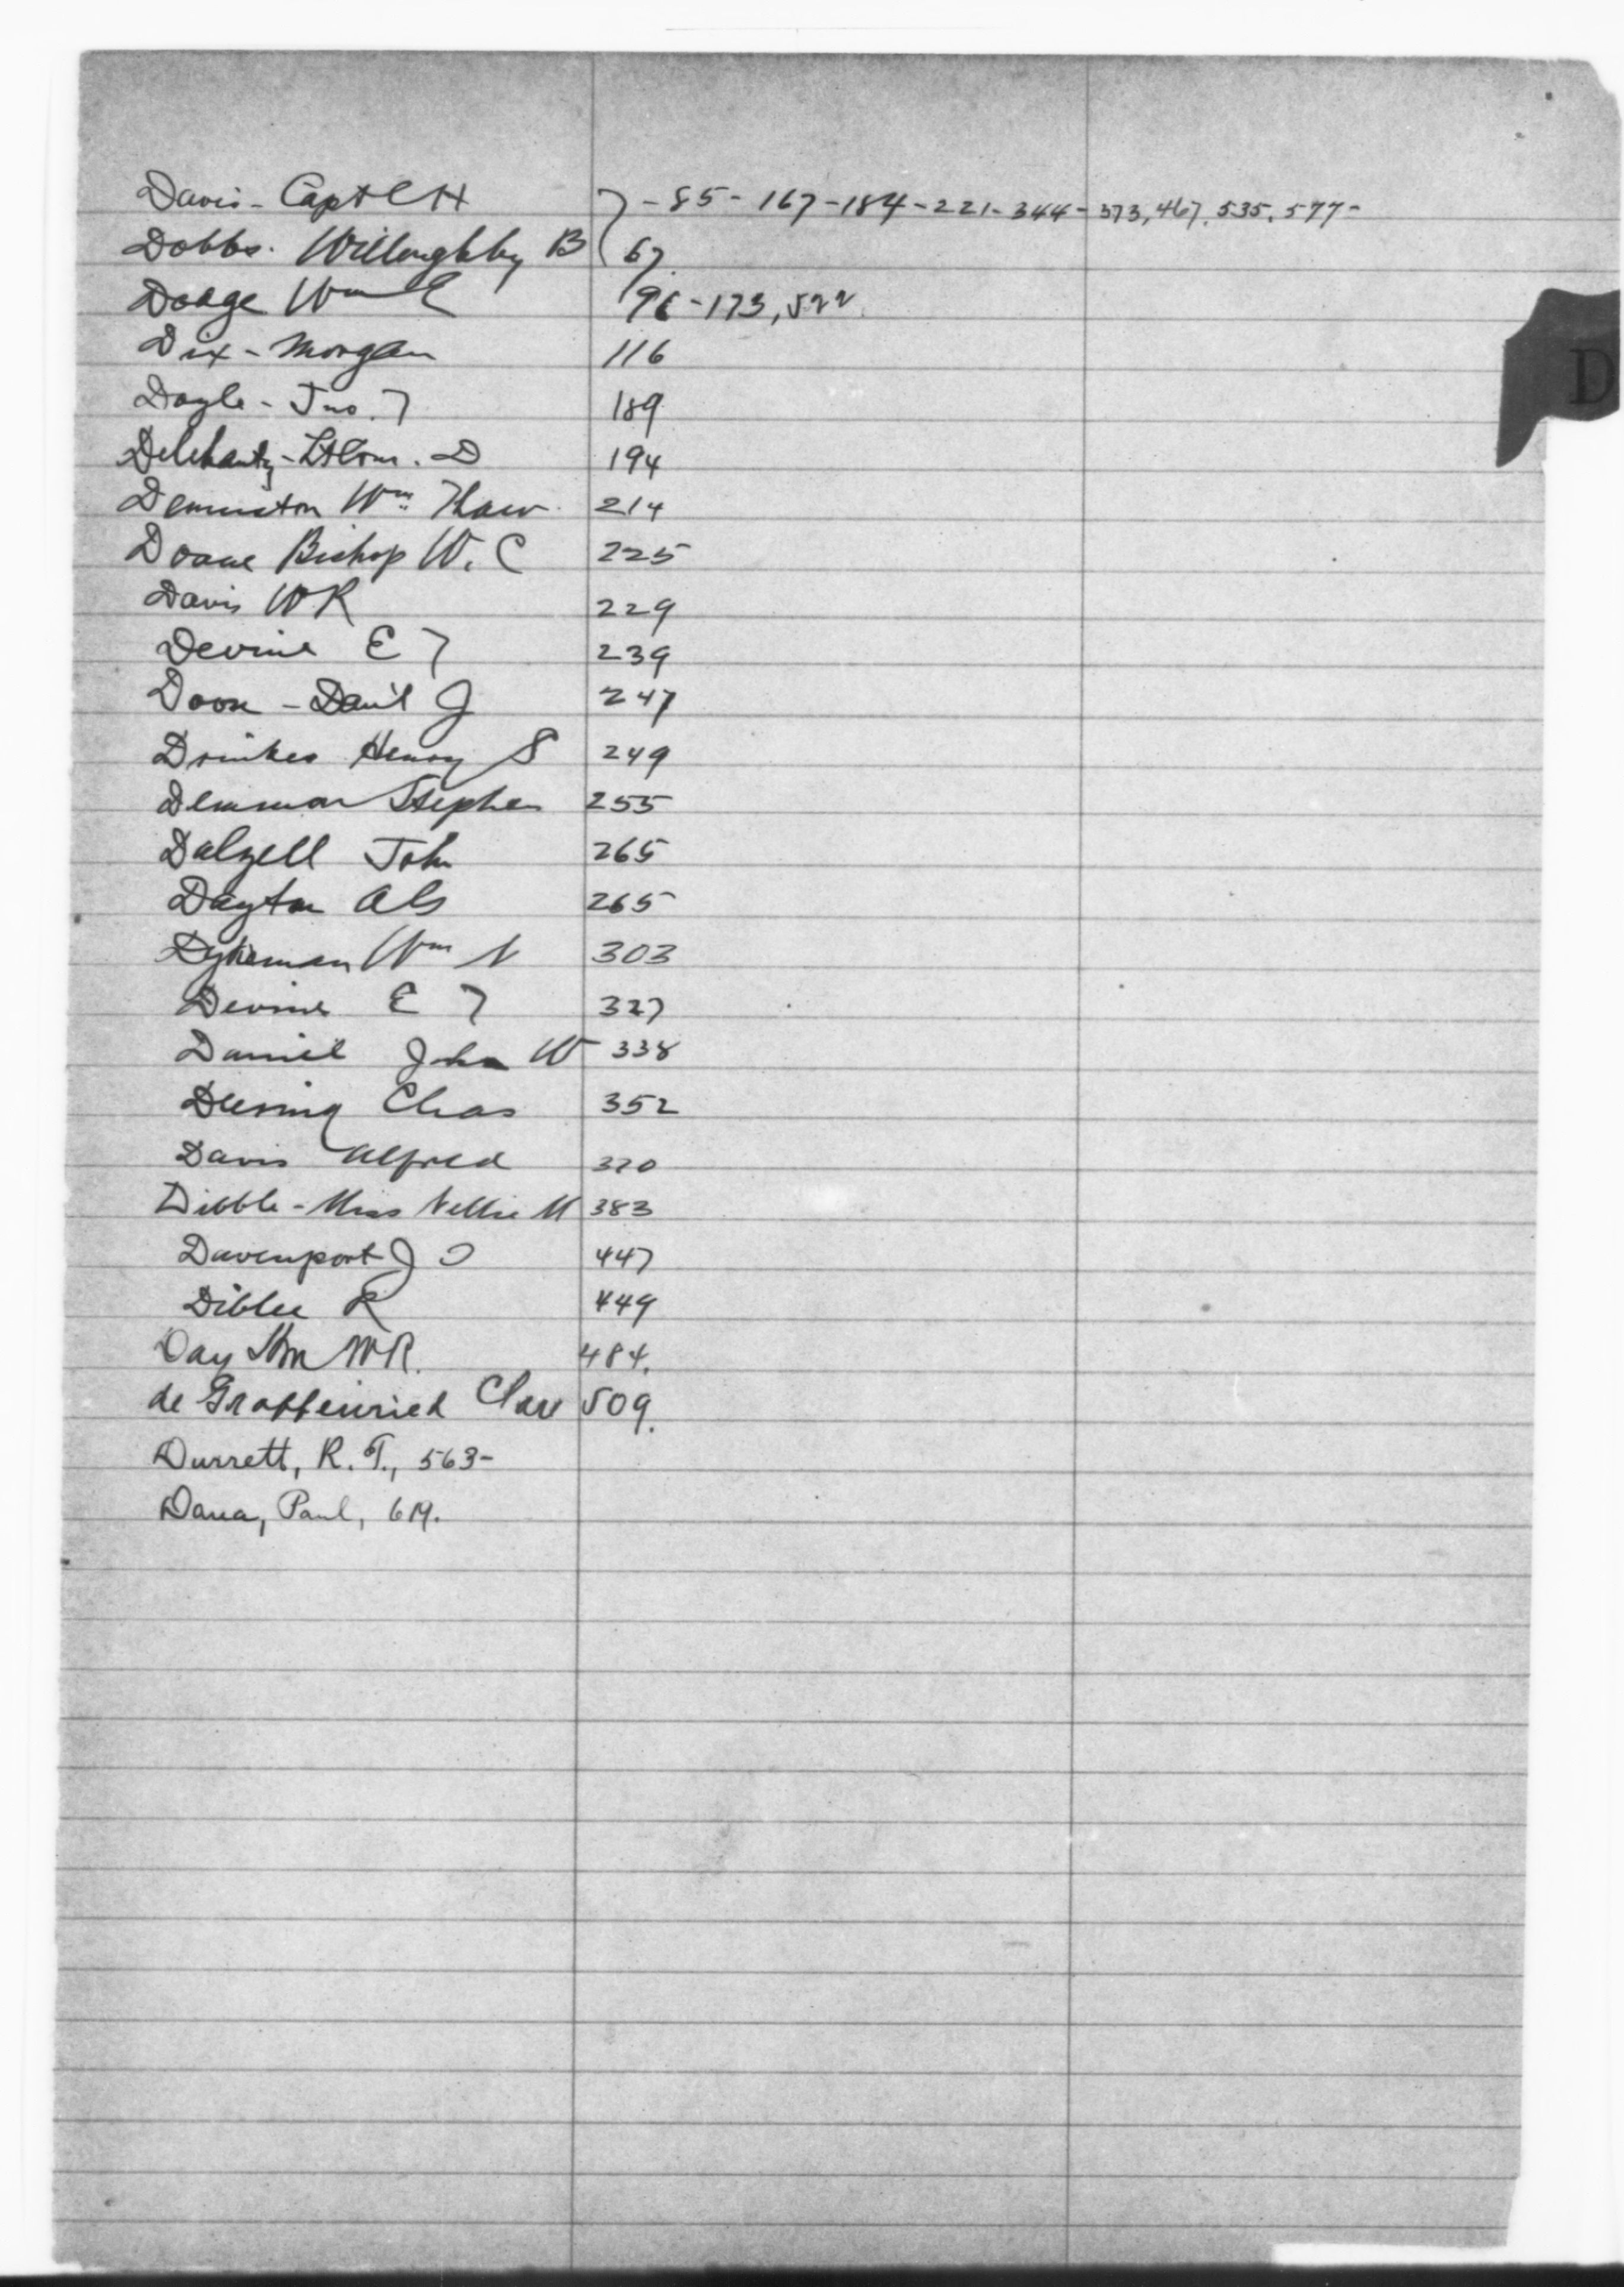 D
Davis - Capt C H 7 - 85 - 167 - 184 - 221 - 344 - 373, 467, 535, 577 -
Dobbs. Willoughby B 67
Dodge Wm E 96 - 173, 522.
Dix - Morgan 116
Doyle - Jno. F 189
Delehanty - Lt Com. D 194
Denniston Wm Thaw 214
Doane Bishop W. C 225
Davis W R 229
Devine E T 239
Doon - Dan'l J 247
Drinker Henry S 249
Stephen 255
Dalzell John 265
Dayton A G 265
Dykeman Wm N 303
Devine E T 327
Daniel John W 338
Deering Chas 352
Davis Alfred 370
Dibble - Miss Nellie M 383
Davenport J 447
Diblee R 449
Day Hon W R. 484.
de Graffenried Clare 509.
Durrett, R. T., 563 -
Dana, Paul, 619.